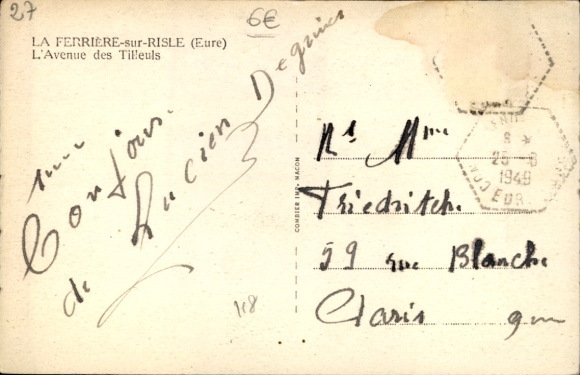 27
6€
LA FERRIÈRE-sur-RISLE (Eure)
L'Avenue des Tilleuls
Bonjour
de Lucien Degrives
118
COMBIER IMP. MACON
Mme
Friedritch
59 rue Blanche
Paris 9me
1949
EURE